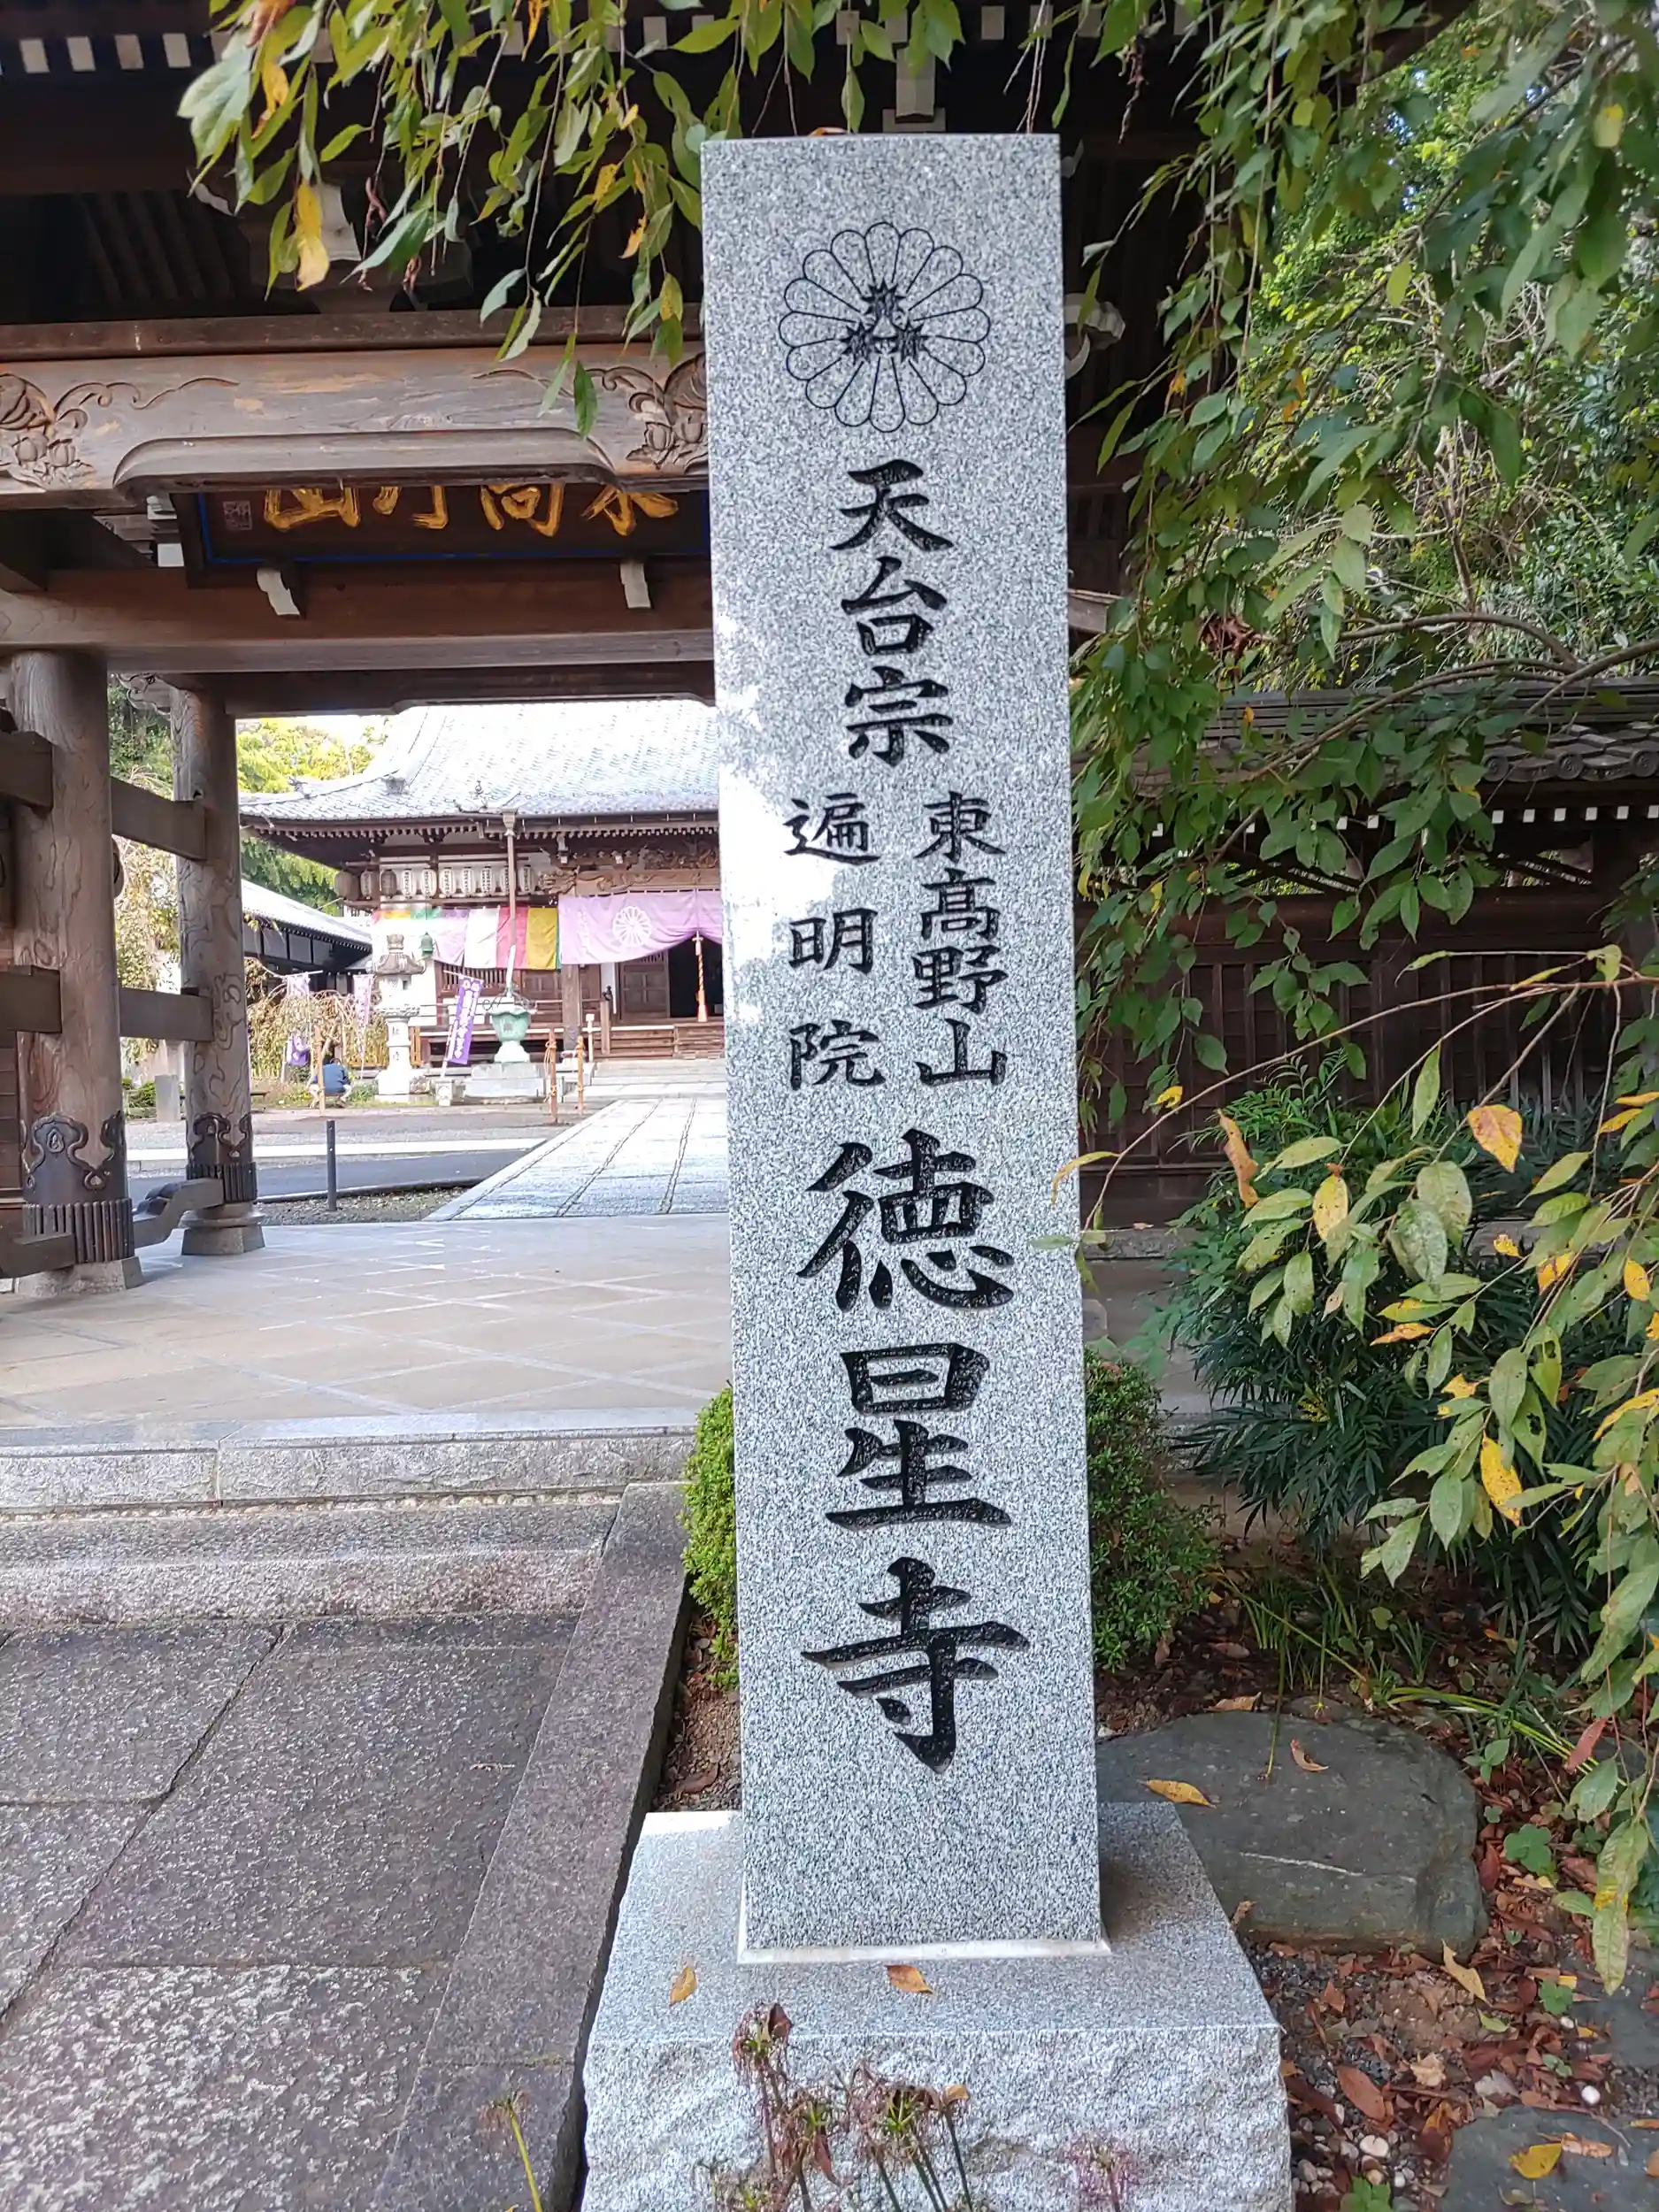 天台宗
東高野山
遍明院
徳星寺